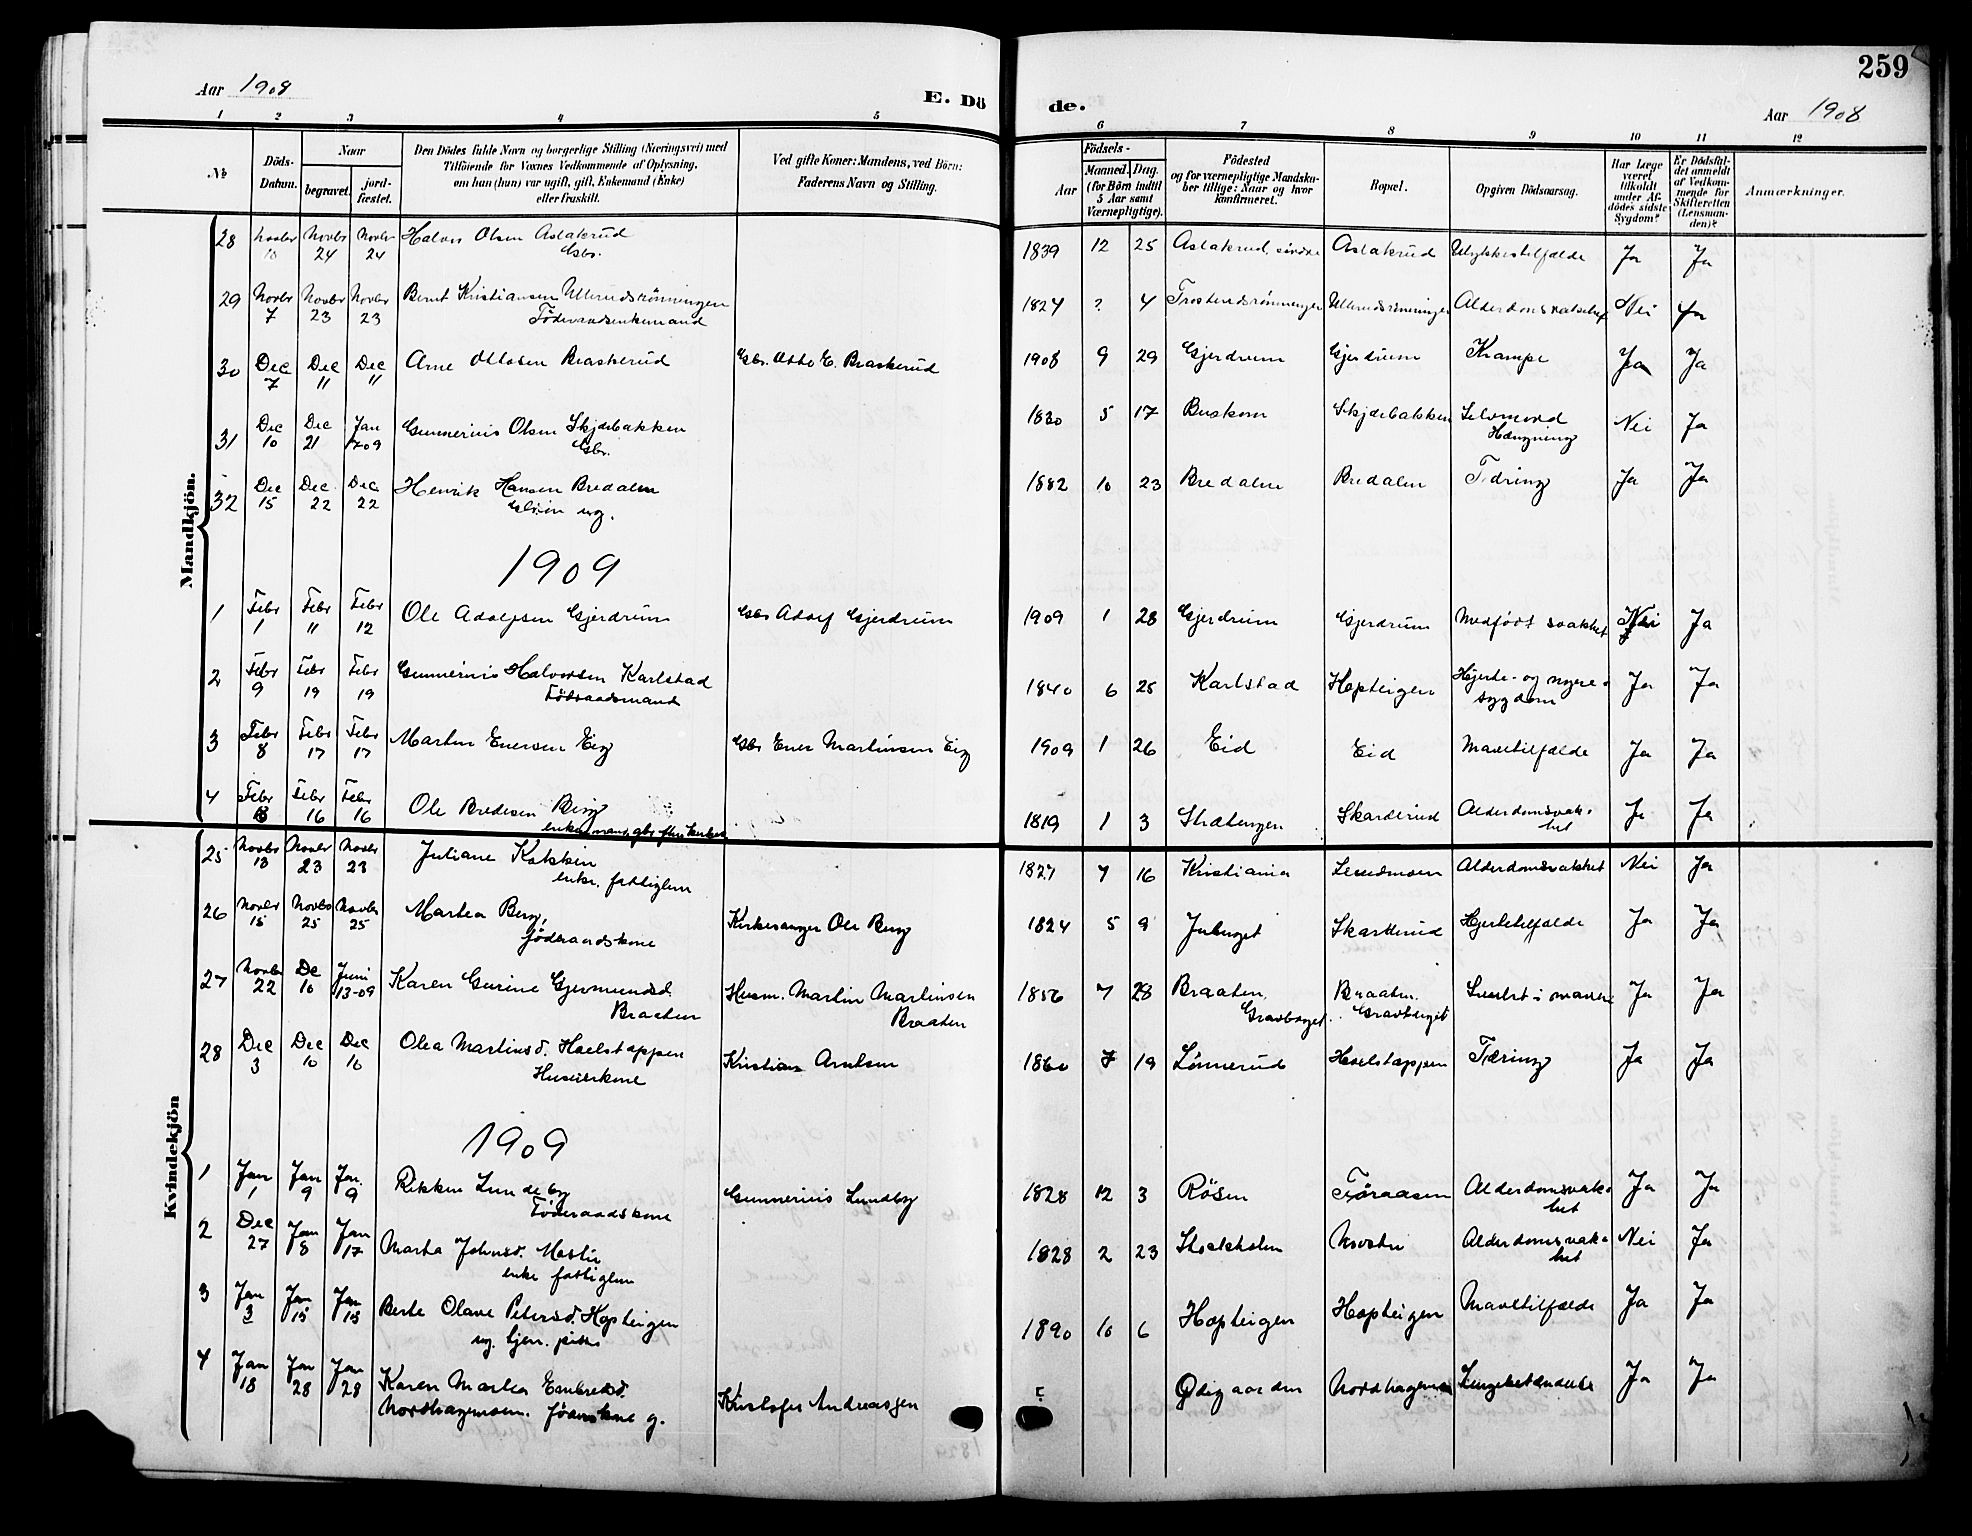 259
Aar 1908
E. Dö
de.
Aar 1908
1 2 3 4 5
6 7 8 9 10 11 12
№
Döds-Datum.
Naar
begravet.
jord-fæstet.
Den Dödes fulde Navn og borgerlige Stilling (Næringsvei) med
Tilföiende for Voxnes Vedkommende af Oplysning,
om han (hun) var ugift, gift, Enkemand (Enke)
eller fraskilt.
Ved gifte Koner: Mandens, ved Börn:
Faderens Navn og Stilling.
Födsels-
Aar
Maaned. Dag.
(for Börn indtil
5 Aar samt
Værnepligtige).
Födested
og for værnepligtige Mandska-
ber tillige: Naar og hvor
konfirmeret.
Bopæl.
Opgiven Dödsaarsag.
Har Læge
været
tilkaldt
under Af-
dödes sidste
Sygdom?
Er Dödsfal-
det anmeldt
af Vedkom-
mende for
Skifteretten
(Lensman-
den)?
Anmærkninger.
Mandkjön.
28 Novbr 18 Novbr 24 Novbr 24 Halvor Olsen Aslakrud Gbr. 1839 12 25 Aslakrud, søndre Aslakrud Ulykkestilfælde Ja Ja
29 Novbr 7 Novbr 23 Novbr 23 Bernt Kristiansen Ullerudsrønningen Føderaadsenkemand 1824 ? 4 Ullerudsrønningen Alderdomssvakhet Nei Ja
30 Dec 7 Dec 11 Dec 11 Arne Ottosen Braskerud Gbr. Otto E. Braskerud 1908 9 29 Gjerdrum Gjerdrum Krampe Ja Ja
31 Dec 10 Dec 21 Jan 7-09 Gunnerius Olsen Skjæbakken Gbr. 1830 5 17 Buskom Skjæbakken Selvmord Hængning Nei Ja
32 Dec 15 Dec 22 Dec 22 Henrik Hansen Bredalen ug. 1882 10 23 Bredalen Bredalen Tæring Ja Ja
1909
1 Febr 1 Febr 11 Febr 12 Ole Adolfsen Gjerdrum Gbr Adolf Gjerdrum 1909 1 28 Gjerdrum Gjerdrum Medfødt svakhet Nei Ja
2 Febr 9 Febr 19 Febr 19 Gunnerius Halvorsen Karlstad Fødraadsmand 1840 6 25 Karlstad Hapteigen Hjerte- og nyre-sygdom Ja Ja
3 Febr 8 Febr 17 Febr 17 Martin Enersen Eig Gbr Ener Martinsen Eig 1909 1 26 Eid Eid Mavetilfælde Ja Ja
4 Febr 8 Febr 16 Febr 16 Ole Bredesen Berg enkemand, 1819 1 3 Strætengen Skarderud Alderdomsvakhet Ja Ja
Kvindekjön
25 Novbr 13 Novbr 23 Novbr 23 Juliane Kokkin enke, fattiglem 1827 7 16 Kristiania Alderdomsvakhet Nei Ja
26 Novbr 15 Novbr 25 Novbr 25 Martea Berg, føderaadskone Kirkesanger Ole Berg 1824 5 9 Juberget Skarderud Hjertetilfælde Ja Ja
27 Novbr 22 De 10 Juni 13-09 Karen Gurine Gjermundsd. Braaten Husm. Martin Martinsen Braaten 1856 7 28 Braaten, Gravberget. Braaten. Gravberget i maven Ja Ja
28 Dec 3 Dec 10 Dec 10 Olea Martinsd. Haelstappen Kristian Arntsen 1860 7 19 Lønnerud Haelstappen Tæring Ja Ja
1909
1 Jan 1 Jan 9 Jan. 9 Rikken Lundeby Føderaadskone Gunnerius Lundby 1828 12 3 Røsen Føraasen Alderdomsvakhet Ja Ja
2 Dec 27 Jan 8 Jan 17 Marta Johnsd. Mostu enke fattiglem 1828 2 23 Stockholm Alderdomsvakhet Nei Ja
3 Jan 3 Jan 15 Jan 15 Berte Olave Petersd. Hapteigen ug. tjen. pike 1890 10 6 Hapteigen Hapteigen Mavetilfælde Ja Ja
4 Jan 18 Jan 28 Jan 28 Karen Martea Embretsd. Nordhagamoen. g. Kristofer Andreassen Ødegaarden Lungebetændelse Ja Ja